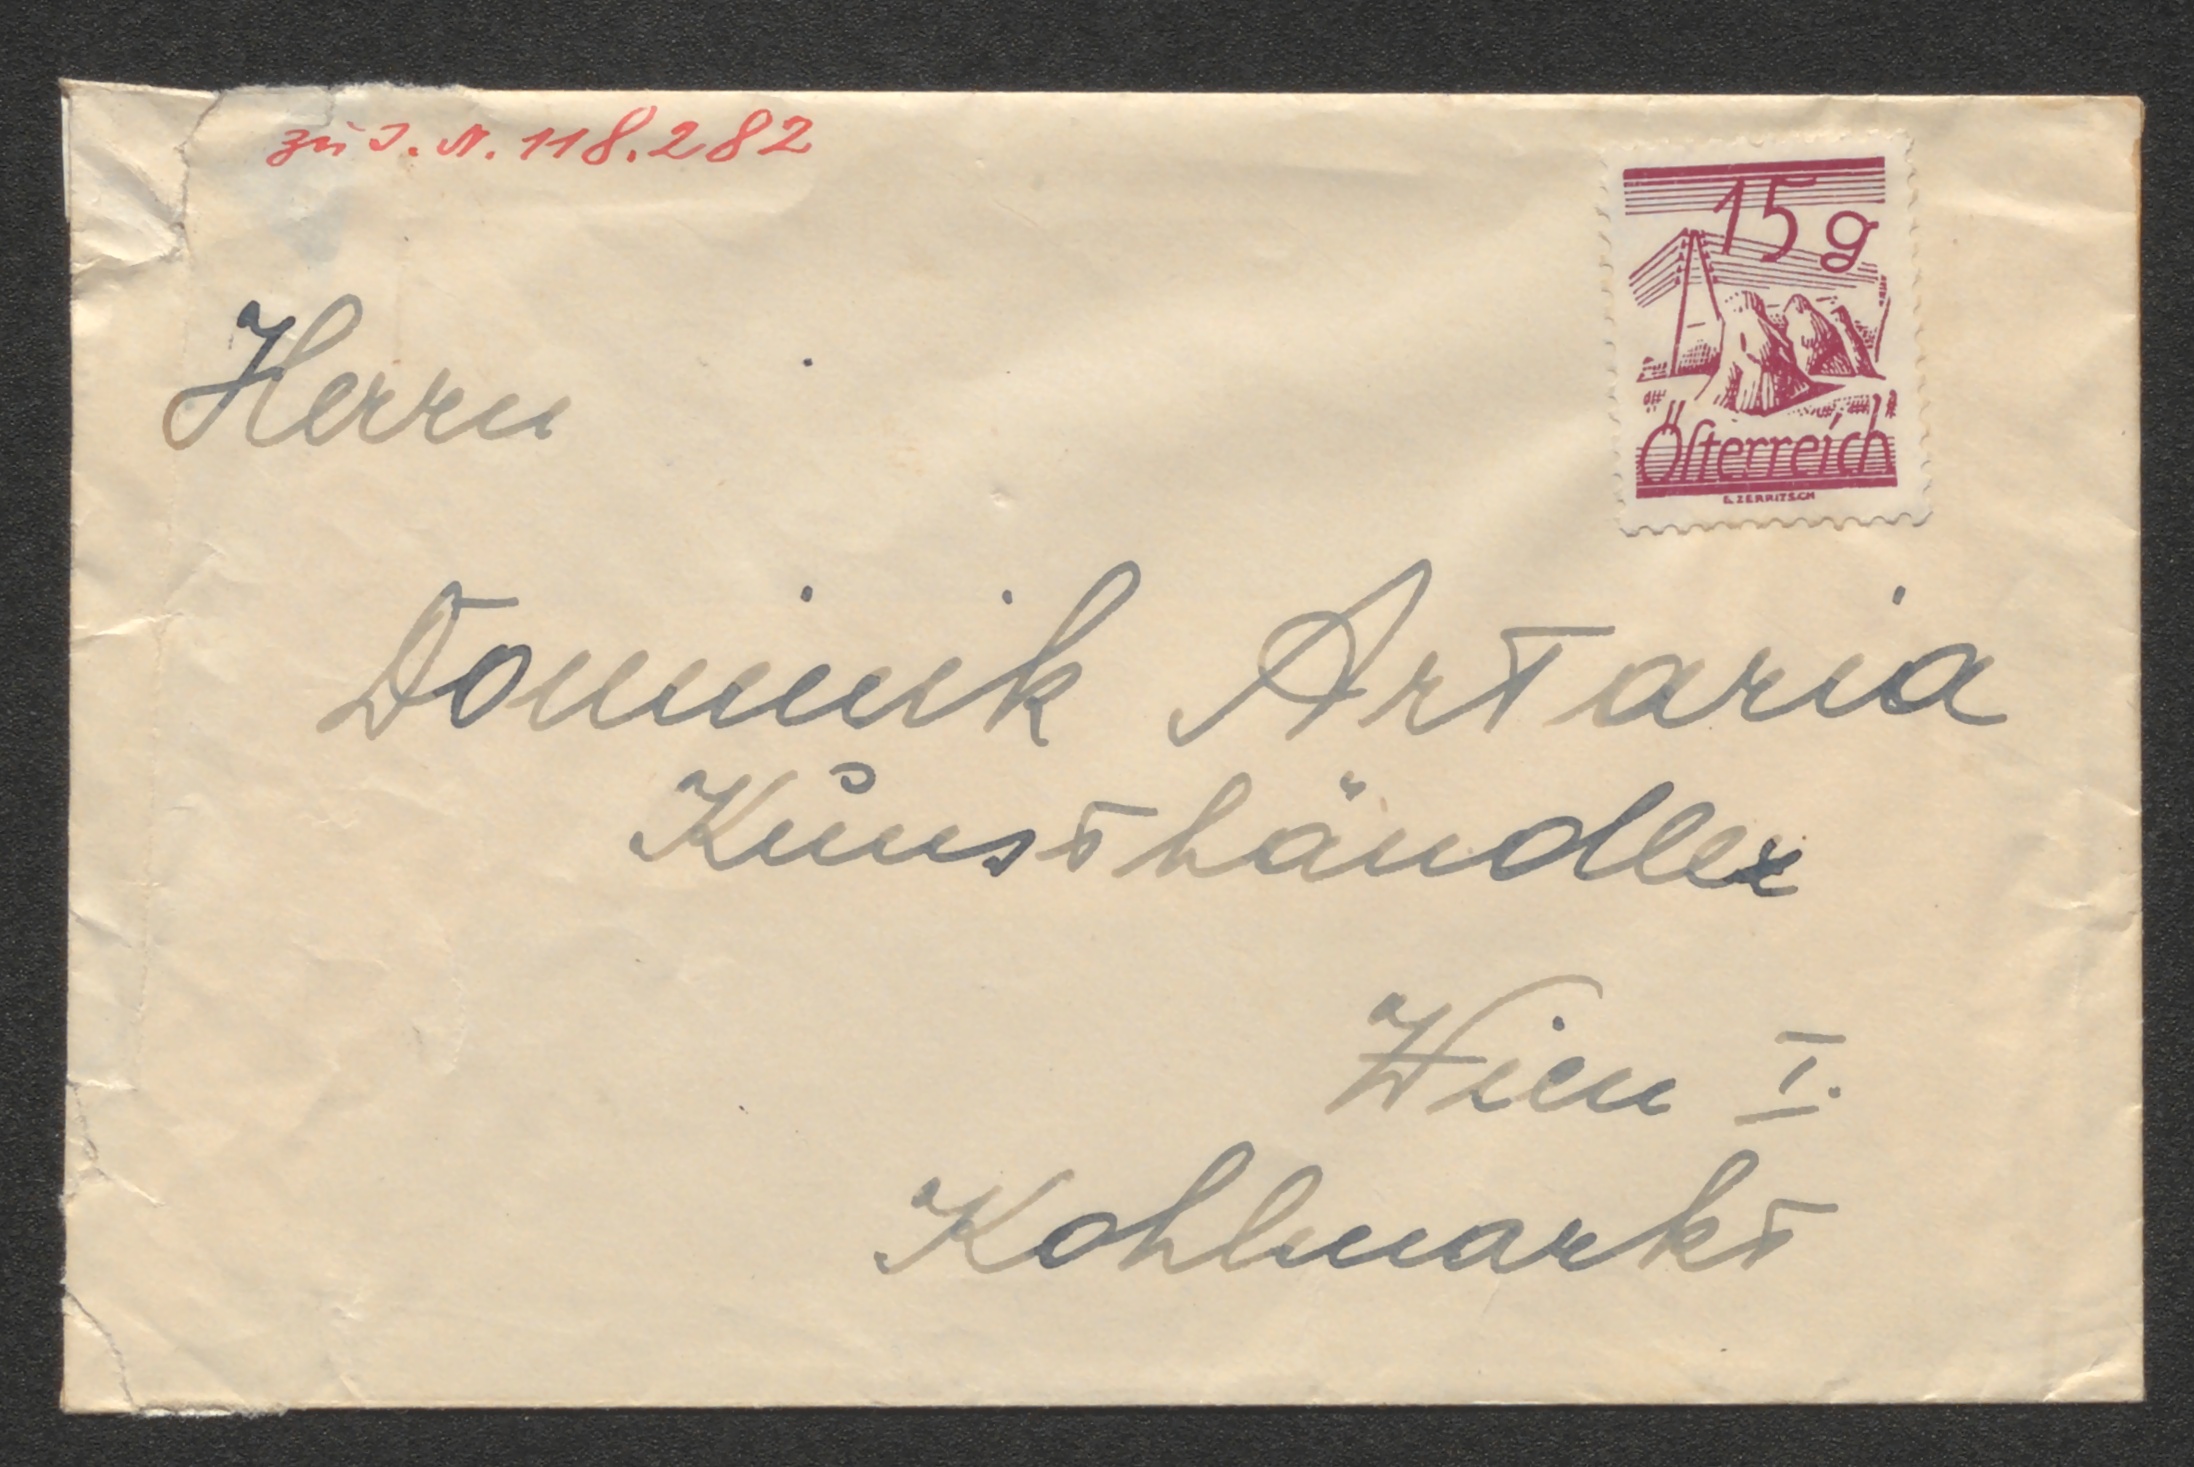 zu I.N. 118.282
15 g
Österreich
E. ZERRITSCH
Herrn
Dominik Artaria
Kunsthändler
Wien I.
Kohlmarkt